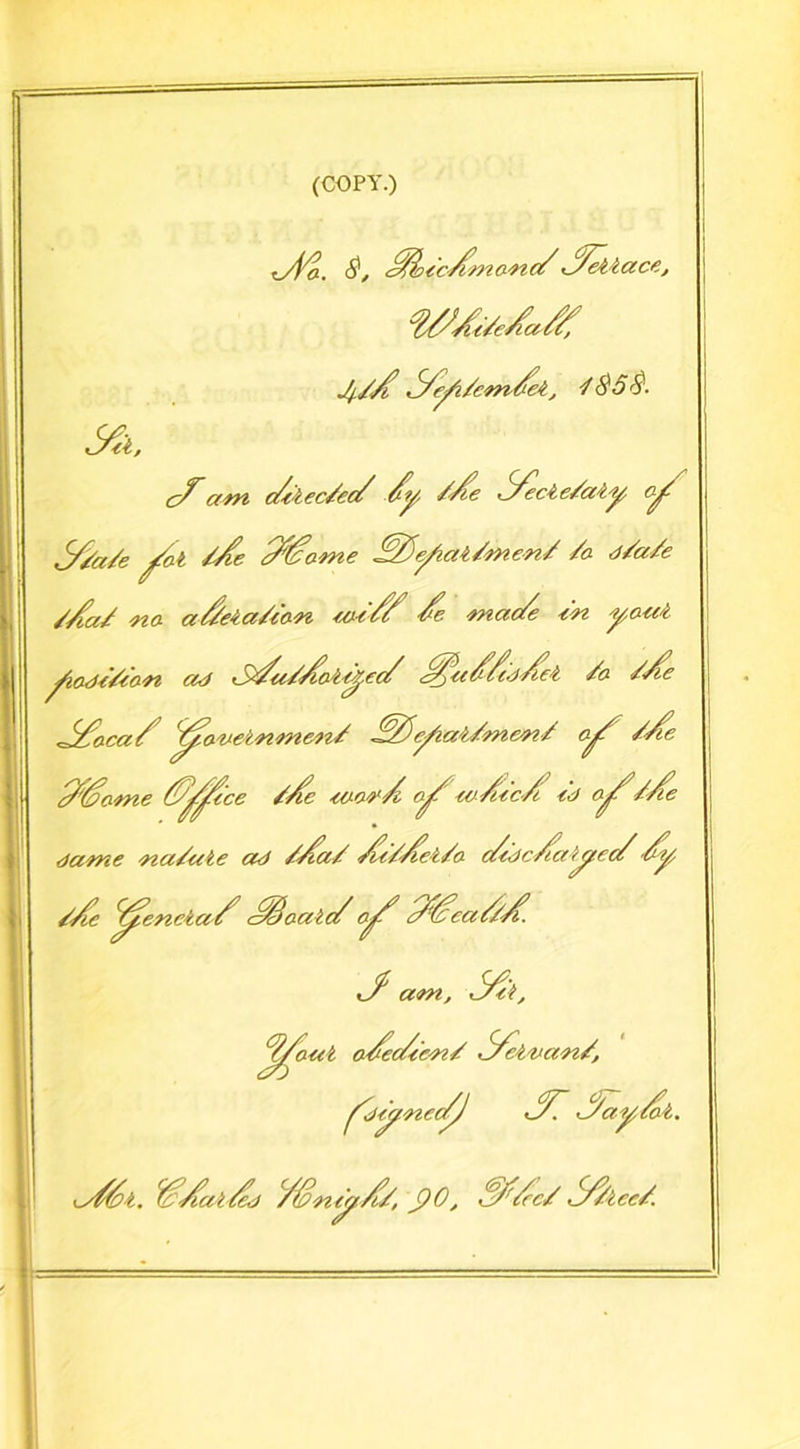 (COPY.)
No. 8, Richmond Terrace,
Whitehall,
4th September, 1858.
Sir,
I am directed by the Secretary of
State for the Home Department to state
that no alteration will be made in your
position as Authorized Publisher to the
Local Government Department of the
Home Office the work of which is of the
same nature as that hitherto discharged by
the General Board of Health.
I am, Sir,
Your obedient Servant,
(signed) T. Taylor.
Mr. Charles Knight, 90, Fleet Street.